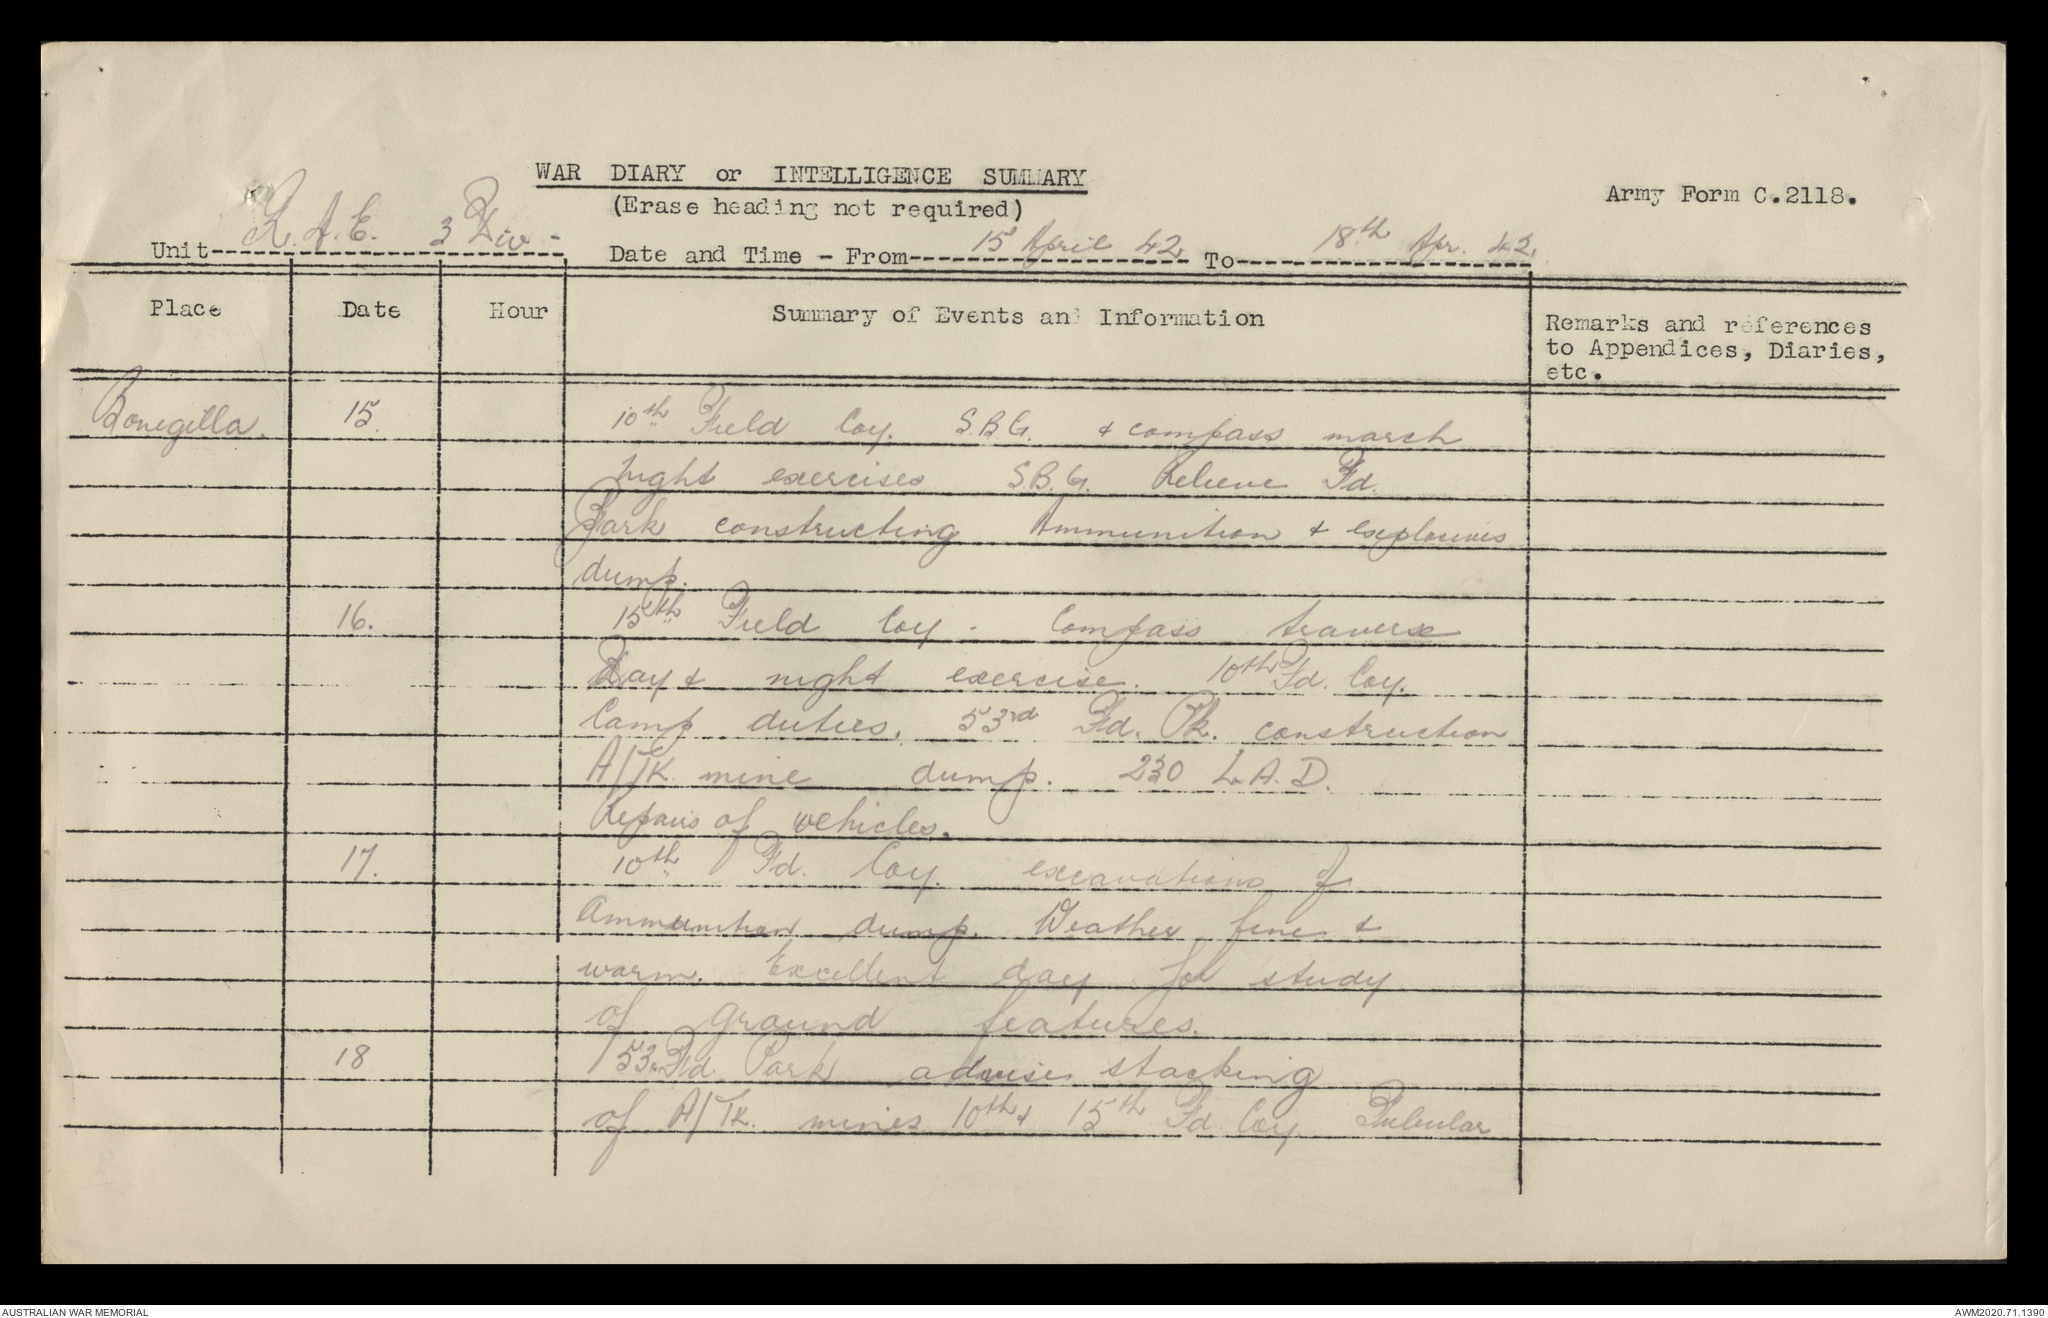 WAR DIARY or INTELLIGENCE SUMMARY
(Erase heading not required)
Army Form C.2118.
Unit R.A.E. 3 Div -
Date and Time - From 15 April 42 To 18th Apr. 42
Place Date Hour Summary of Events and Information Remarks and references
to Appendices, Diaries,
etc.
Bonegilla. 15. 10th Field Coy. S.B.G. & compass march
Night exercises S.B.G. Relieve Fd.
Park constructing Ammunition & explosives
dump.
16. 15th Field Coy - Compass traverse
Day & night exercise. 10th Fd. Coy.
Camp duties. 53rd Fd. Pk. construction
A/TK. mine dump. 230 L.A.D.
Repairs of vehicles.
17. 10th Fd. Coy. excavations of
Ammunition dump. Weather fine &
warm. Excellent day for study
of ground features.
18 53rd Fd. Park advise stacking
of A/TK. mines 10th & 15th Fd. Coy. Tubular
AUSTRALIAN WAR MEMORIAL
AWM2020.71.1390